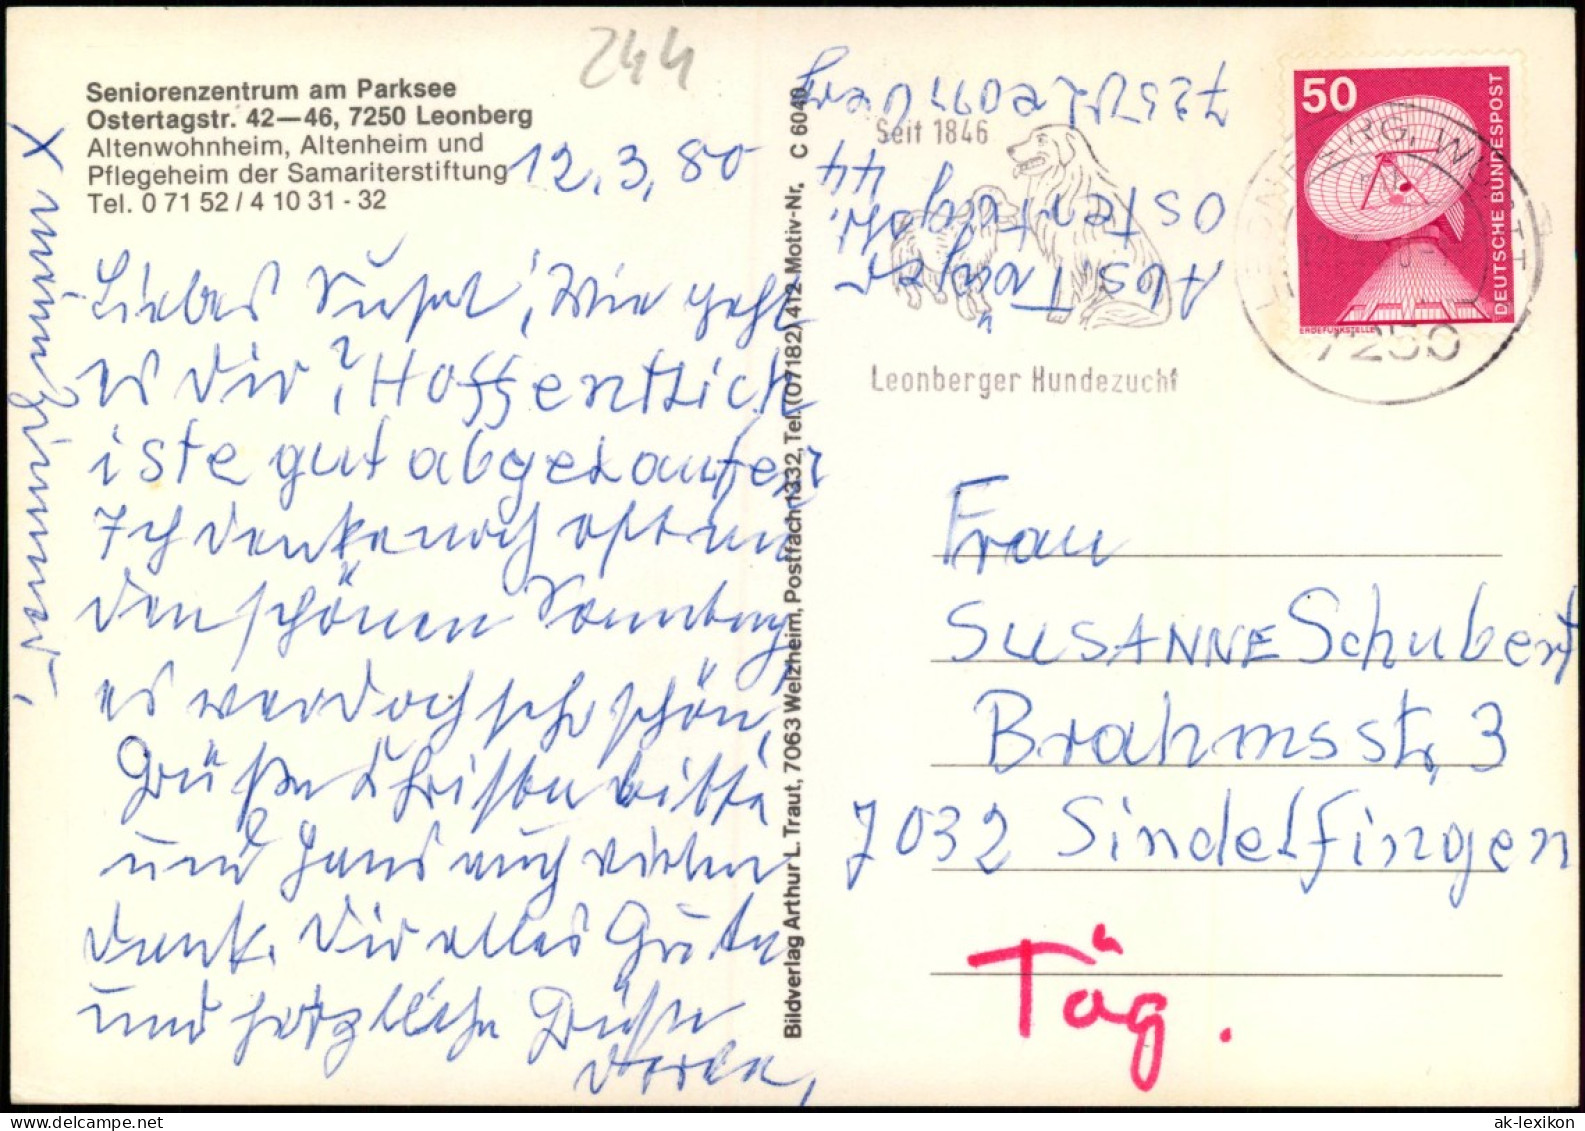 244
Seniorenzentrum am Parksee
Ostertagstr. 42—46, 7250 Leonberg
Altenwohnheim, Altenheim und
Pflegeheim der Samariterstiftung
Tel. 0 71 52 / 4 10 31 - 32
12.3.80
Liebes Susel, Wie geht
es dir? Hoffentlich
iste gut abgelaufen
Ich denke noch oft an
den schönen Sonntag,
es war doch sehr schön,
Grüße Christin bitte
und Hans auch vielen
Dank. Dir alles Gute
und herzliche Grüße
Bildverlag Arthur L. Traut, 7063 Welzheim, Postfach 1332, Tel. (07182) 412 Motiv-Nr. C 6040
Abs Träger
Ostertagstr. 44
725 Leonberg
Seit 1846
Leonberger Hundezucht
LEONBERG, WÜRTT
7250
50
DEUTSCHE BUNDESPOST
ERDEFUNKSTELLE
Frau
SUSANNE Schubert
Brahmsstr. 3
7032 Sindelfingen
Täg.
ak-lexikon